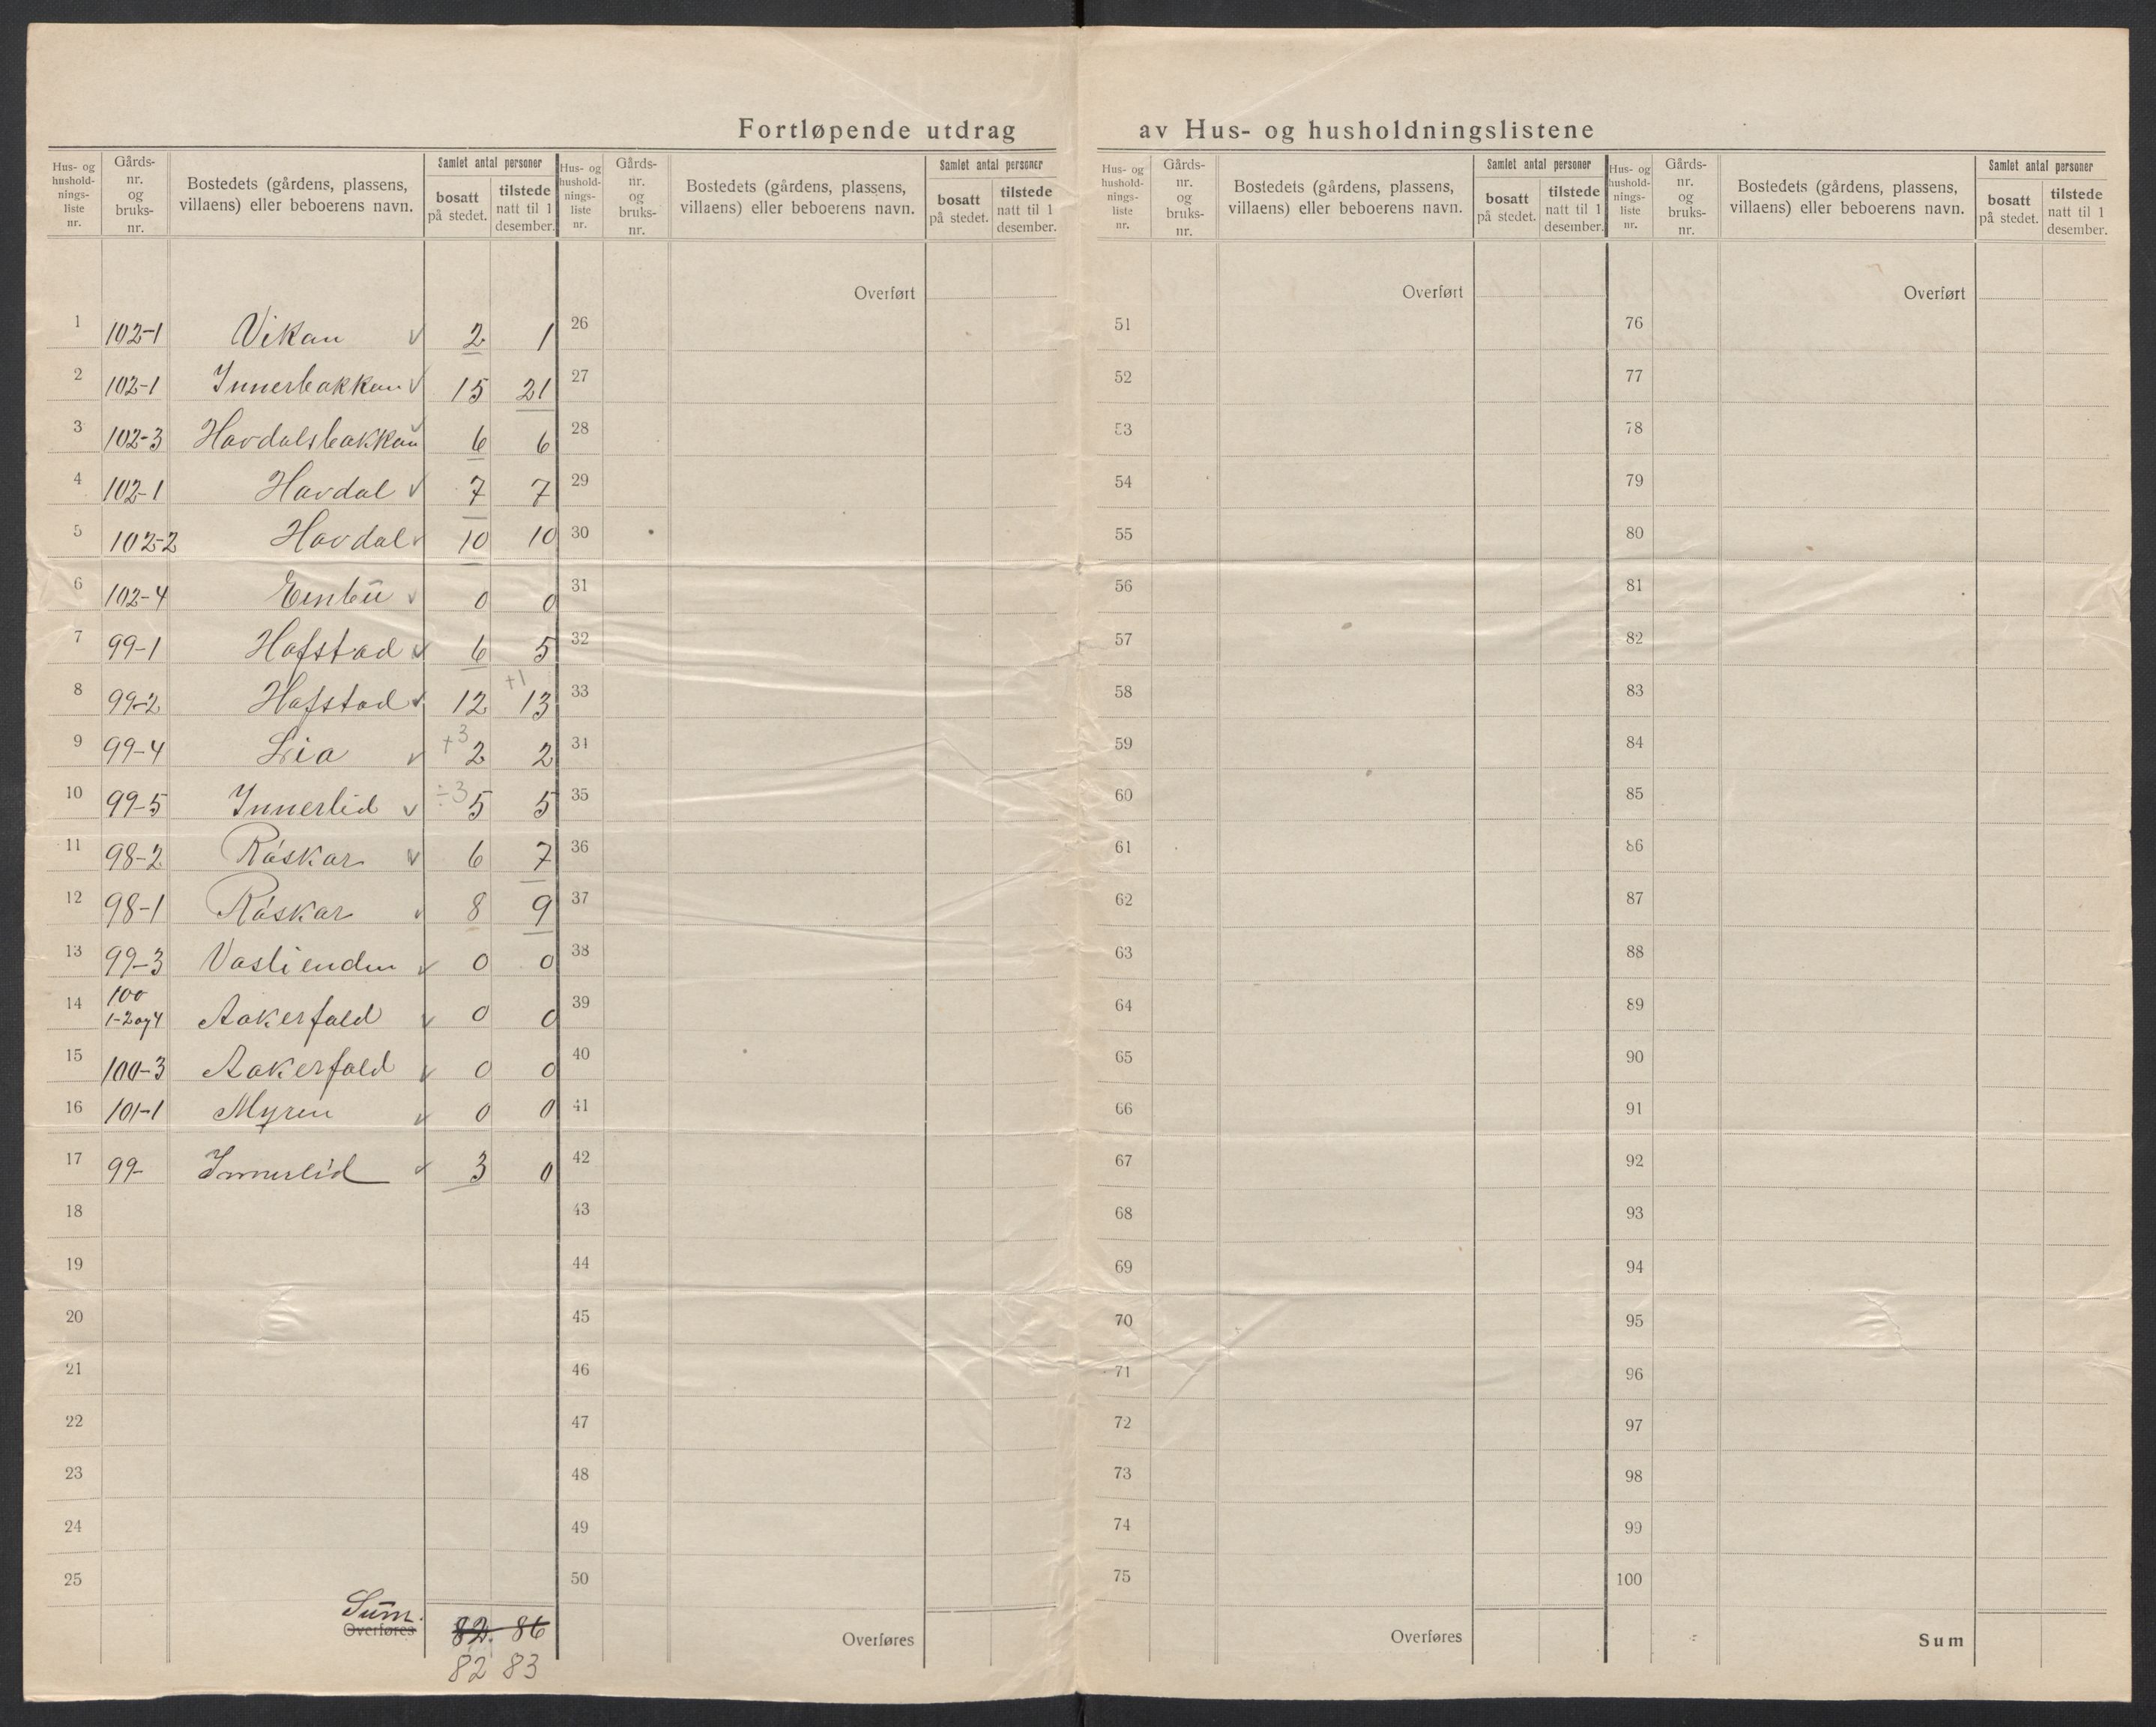 Fortløpende utdrag av Hus- og husholdningslistene
Hus- og hushold-nings-liste nr. Gårds-nr. og bruks-nr. Bostedets (gårdens, plassens, villaens) eller beboerens navn. Samlet antal personer bosatt på stedet. tilstede natt til 1 desember.
Hus- og hushold-nings-liste nr. Gårds-nr. og bruks-nr. Bostedets (gårdens, plassens, villaens) eller beboerens navn. Samlet antal personer bosatt på stedet. tilstede natt til 1 desember.
Hus- og hushold-nings-liste nr. Gårds-nr. og bruks-nr. Bostedets (gårdens, plassens, villaens) eller beboerens navn. Samlet antal personer bosatt på stedet. tilstede natt til 1 desember.
Hus- og hushold-nings-liste nr. Gårds-nr. og bruks-nr. Bostedets (gårdens, plassens, villaens) eller beboerens navn. Samlet antal personer bosatt på stedet. tilstede natt til 1 desember.
Overført Overført Overført
1 102-1 Vikan v 2 1 26 51 76
2 102-1 Innerbakkan v 15 21 27 52 77
3 102-3 Havdalsbakkan v 6 6 28 53 78
4 102-1 Havdal v 7 7 29 54 79
5 102-2 Havdal v 10 10 30 55 80
6 102-4 Eenbu v 0 0 31 56 81
7 99-1 Hafstad v 6 5 32 57 82
8 99-2 Hafstad v 12 +1 13 33 58 83
9 99-4 Lia v +3 2 2 34 59 84
10 99-5 Innerlid v ÷3 5 5 35 60 85
11 98-2 Råskar v 6 7 36 61 86
12 98-1 Råskar v 8 9 37 62 87
13 99-3 Vaslienden v 0 0 38 63 88
14 100 1-2 og 4 Aakerfald v 0 0 39 64 89
15 100-3 Aakerfald v 0 0 40 65 90
16 101-1 Myren v 0 0 41 66 91
17 99- Innerlid v 3 0 42 67 92
18 43 68 93
19 44 69 94
20 45 70 95
21 46 71 96
22 47 72 97
23 48 73 98
24 49 74 99
25 50 75 100
Sum.
Overføres 82. 86 Overføres Overføres Sum
82 83